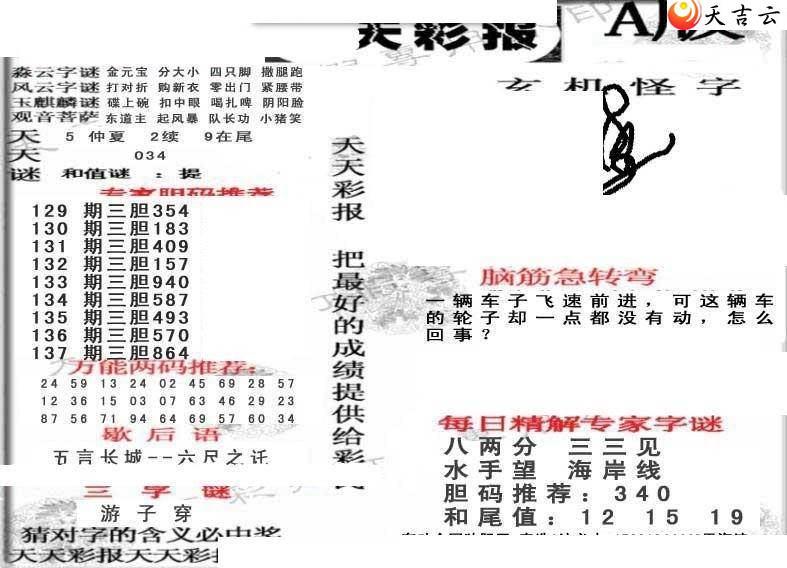 天彩报
A版
天吉云
淼云字谜 金元宝 分大小 四只脚 撒腿跑
风云字谜 打对折 购新衣 零出门 紧腰带
玉麒麟谜 碟上碗 扣中眼 喝扎啤 阴阳脸
观音菩萨 东道主 起风暴 队长功 小猪笑
天 5 仲夏 2续 9在尾
天 034
谜 和值谜 ：提
专家胆码推荐
129 期三胆354
130 期三胆183
131 期三胆409
132 期三胆157
133 期三胆940
134 期三胆587
135 期三胆493
136 期三胆570
137 期三胆864
万能两码推荐：
24 59 13 24 02 45 69 28 57
12 36 15 03 07 63 46 29 23
87 56 71 94 64 69 57 60 34
歇后语
五言长城--六尺之讬
三字谜
游子穿
猜对字的含义必中奖
天天彩报天天彩报
天天彩报 把最好的成绩提供给彩民
玄机怪字
脑筋急转弯
一辆车子飞速前进，可这辆车
的轮子却一点都没有动，怎么
回事？
每日精解专家字谜
八两分 三三见
水手望 海岸线
胆码推荐：340
和尾值：12 15 19